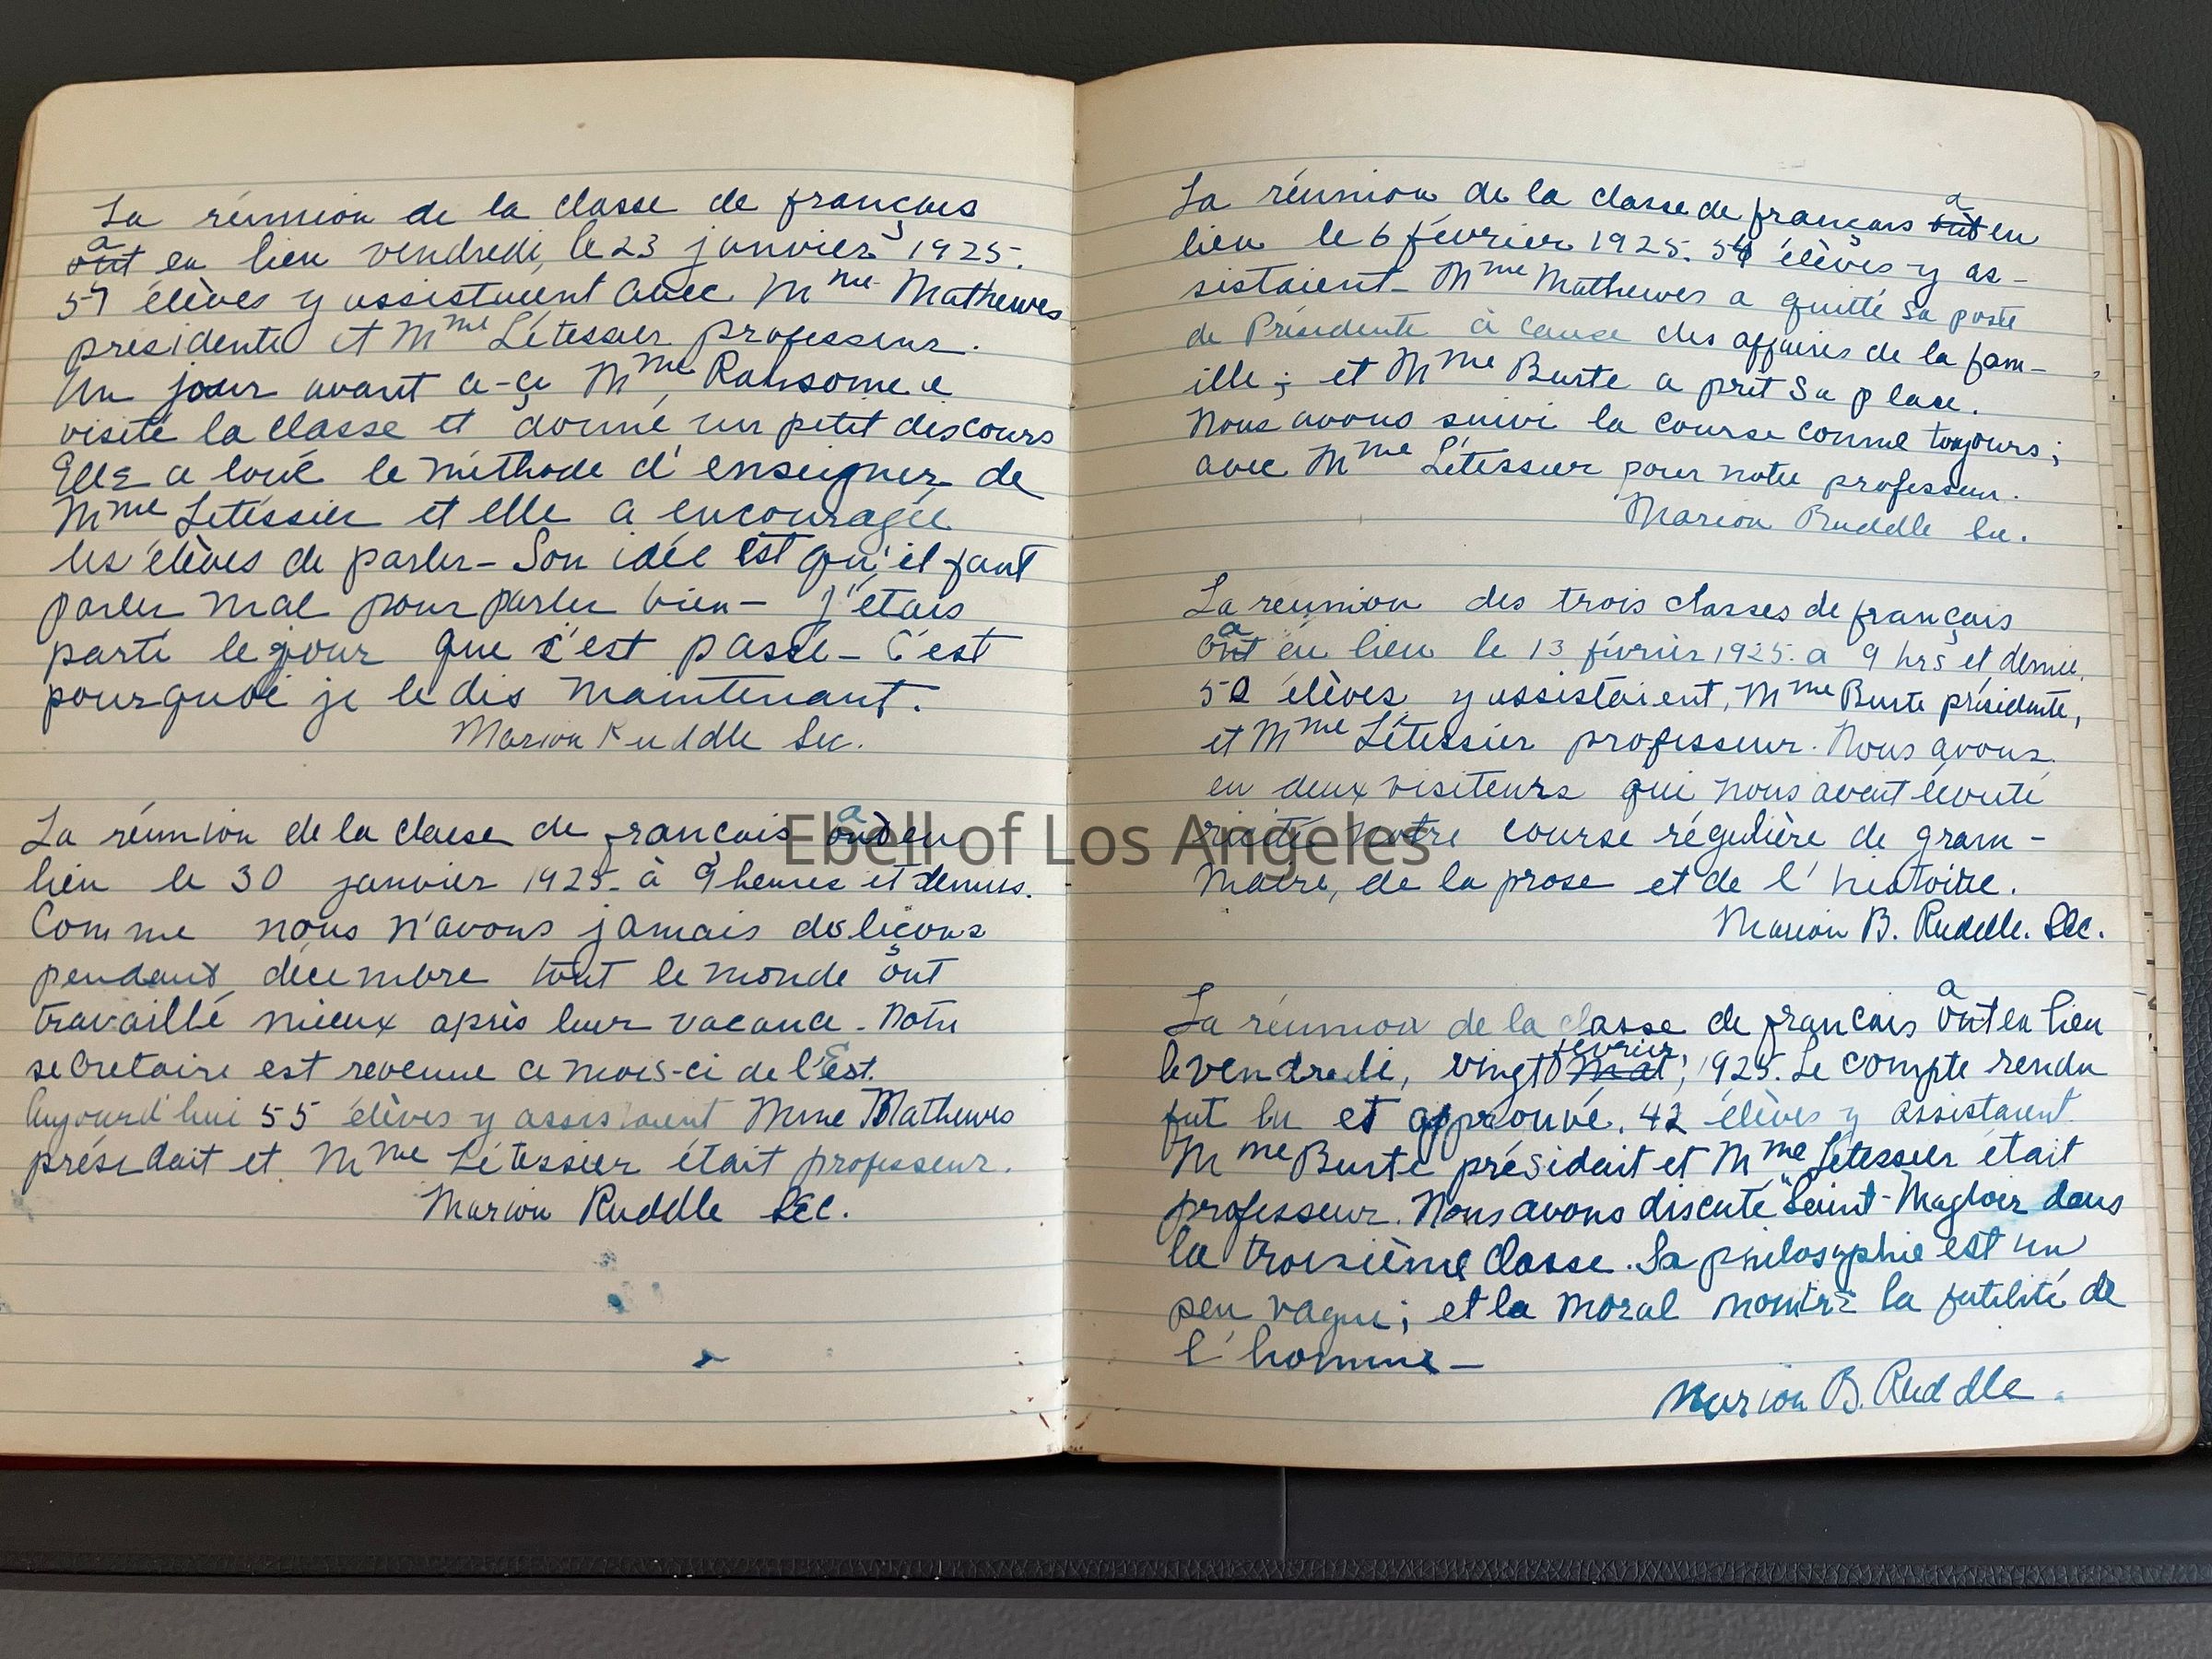 La réunion de la classe de français
a
ont eu lieu vendredi, le 23 janvier 1925.
57 élèves y assistaient avec Mme Mathewes
présidente et Mme Létessier professeur.
Un jour avant ce-ce Mme Ransome a
visité la classe et donné un petit discours
Elle a loué le méthode d'enseigner de
Mme Létessier et elle a encouragée
les élèves de parler - Son idée est qu'il faut
parler mal pour parler bien - J'étais
parti le jour que s'est passé - C'est
pourquoi je le dis maintenant.
Marion Ruddle Sec.
a
La réunion de la classe de français ont eu
lieu le 30 janvier 1925 - à 9 heures et demies.
Comme nous n'avons jamais de leçons
pendant décembre tout le monde ont
travaillé mieux après leur vacance - Notre
secretaire est revenue ce mois-ci de l'Est.
Aujourd'hui 55 élèves y assistaient Mme Mathewes
présidait et Mme Létessier était professeur.
Marion Ruddle SEC.
a
La réunion de la classe de français ont eu
lieu le 6 février 1925. 54 élèves y as-
sistaient - Mme Mathewes a quitté sa poste
de Présidente à cause des affaires de la fam-
ille; et Mme Burte a prit sa place.
Nous avons suivi la course comme toujours;
avec Mme Létessier pour notre professeur.
Marion Ruddle Sec.
La réunion des trois classes de français
a
ont eu lieu le 13 février 1925. a 9 hrs et demie.
52 élèves y assistaient, Mme Burte présidente,
et Mme Létessier professeur. Nous avons
eu deux visiteurs qui nous avait écouté
récité notre course régulière de gram-
maire, de la prose et de l'histoire.
Marion B. Ruddle. Sec.
a
La réunion de la classe de français ont eu lieu
février,
le vendredi, vingt mat, 1925. Le compte rendu
fut lu et approuvé. 42 élèves y assistaient
Mme Burte présidait et Mme Létessier était
professeur. Nous avons discuté "Saint-Magloir dans
la troisième classe. Sa philosophie est un
peu vague; et la moral montre la futilité de
l'homme -
Marion B. Ruddle.
Ebell of Los Angeles